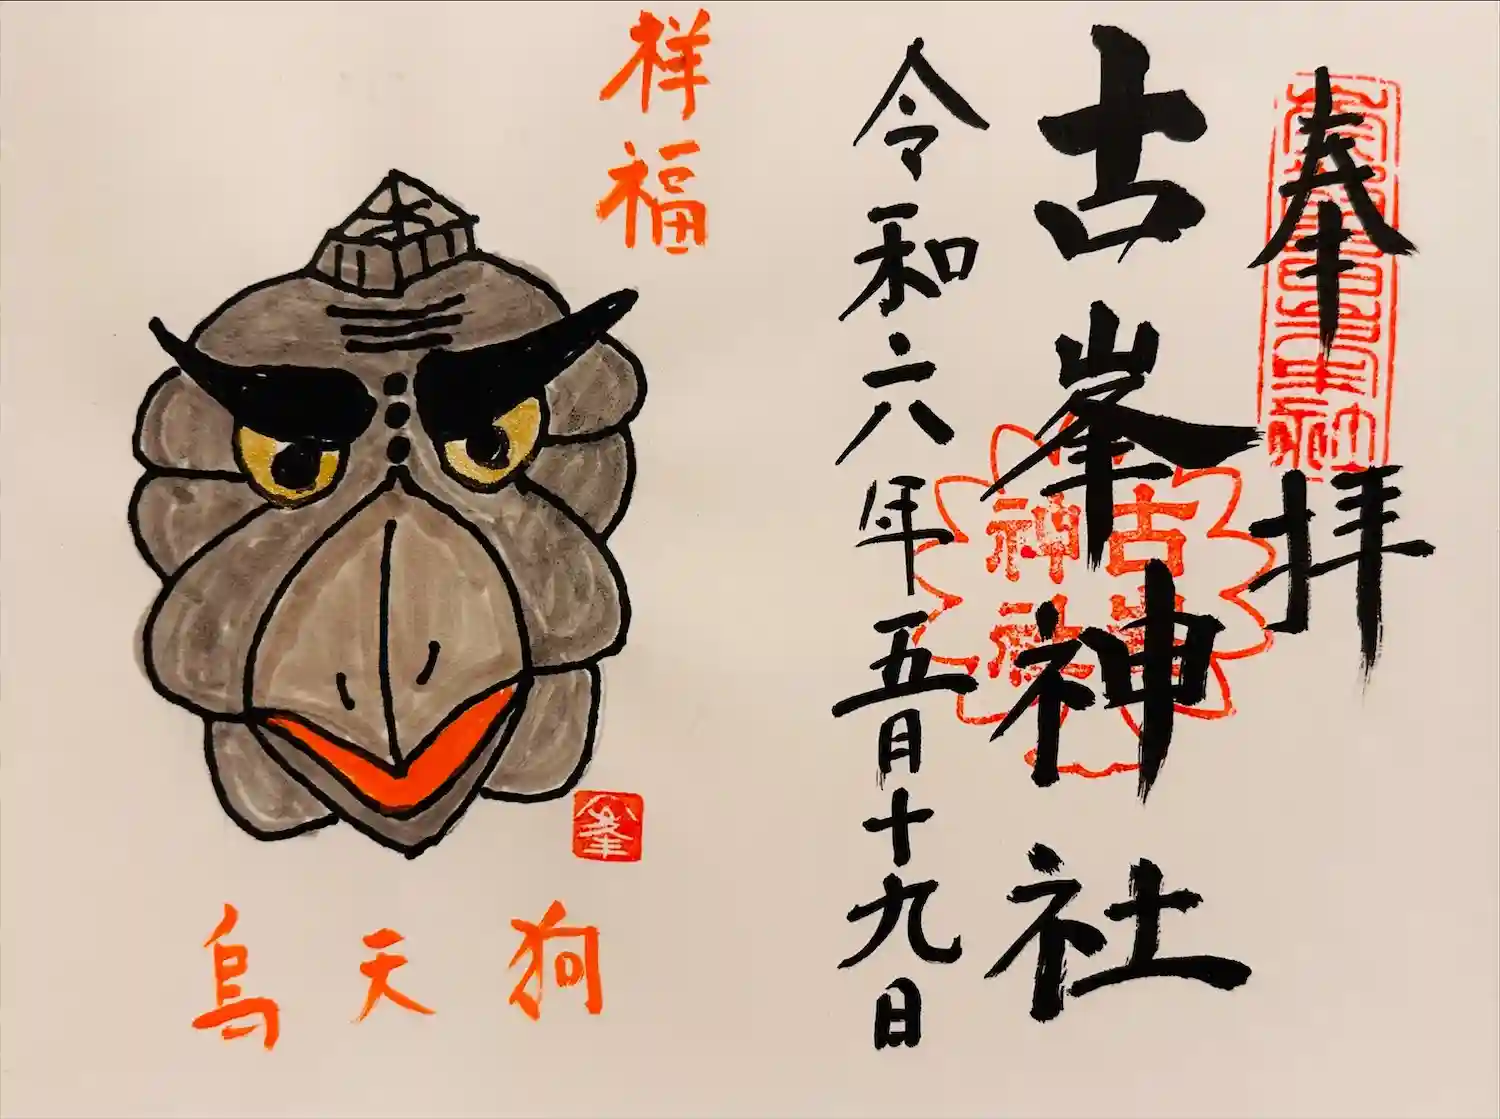 奉拝
古峯神社
令和六年五月十九日
祥福
烏天狗
古峯
神社
峯